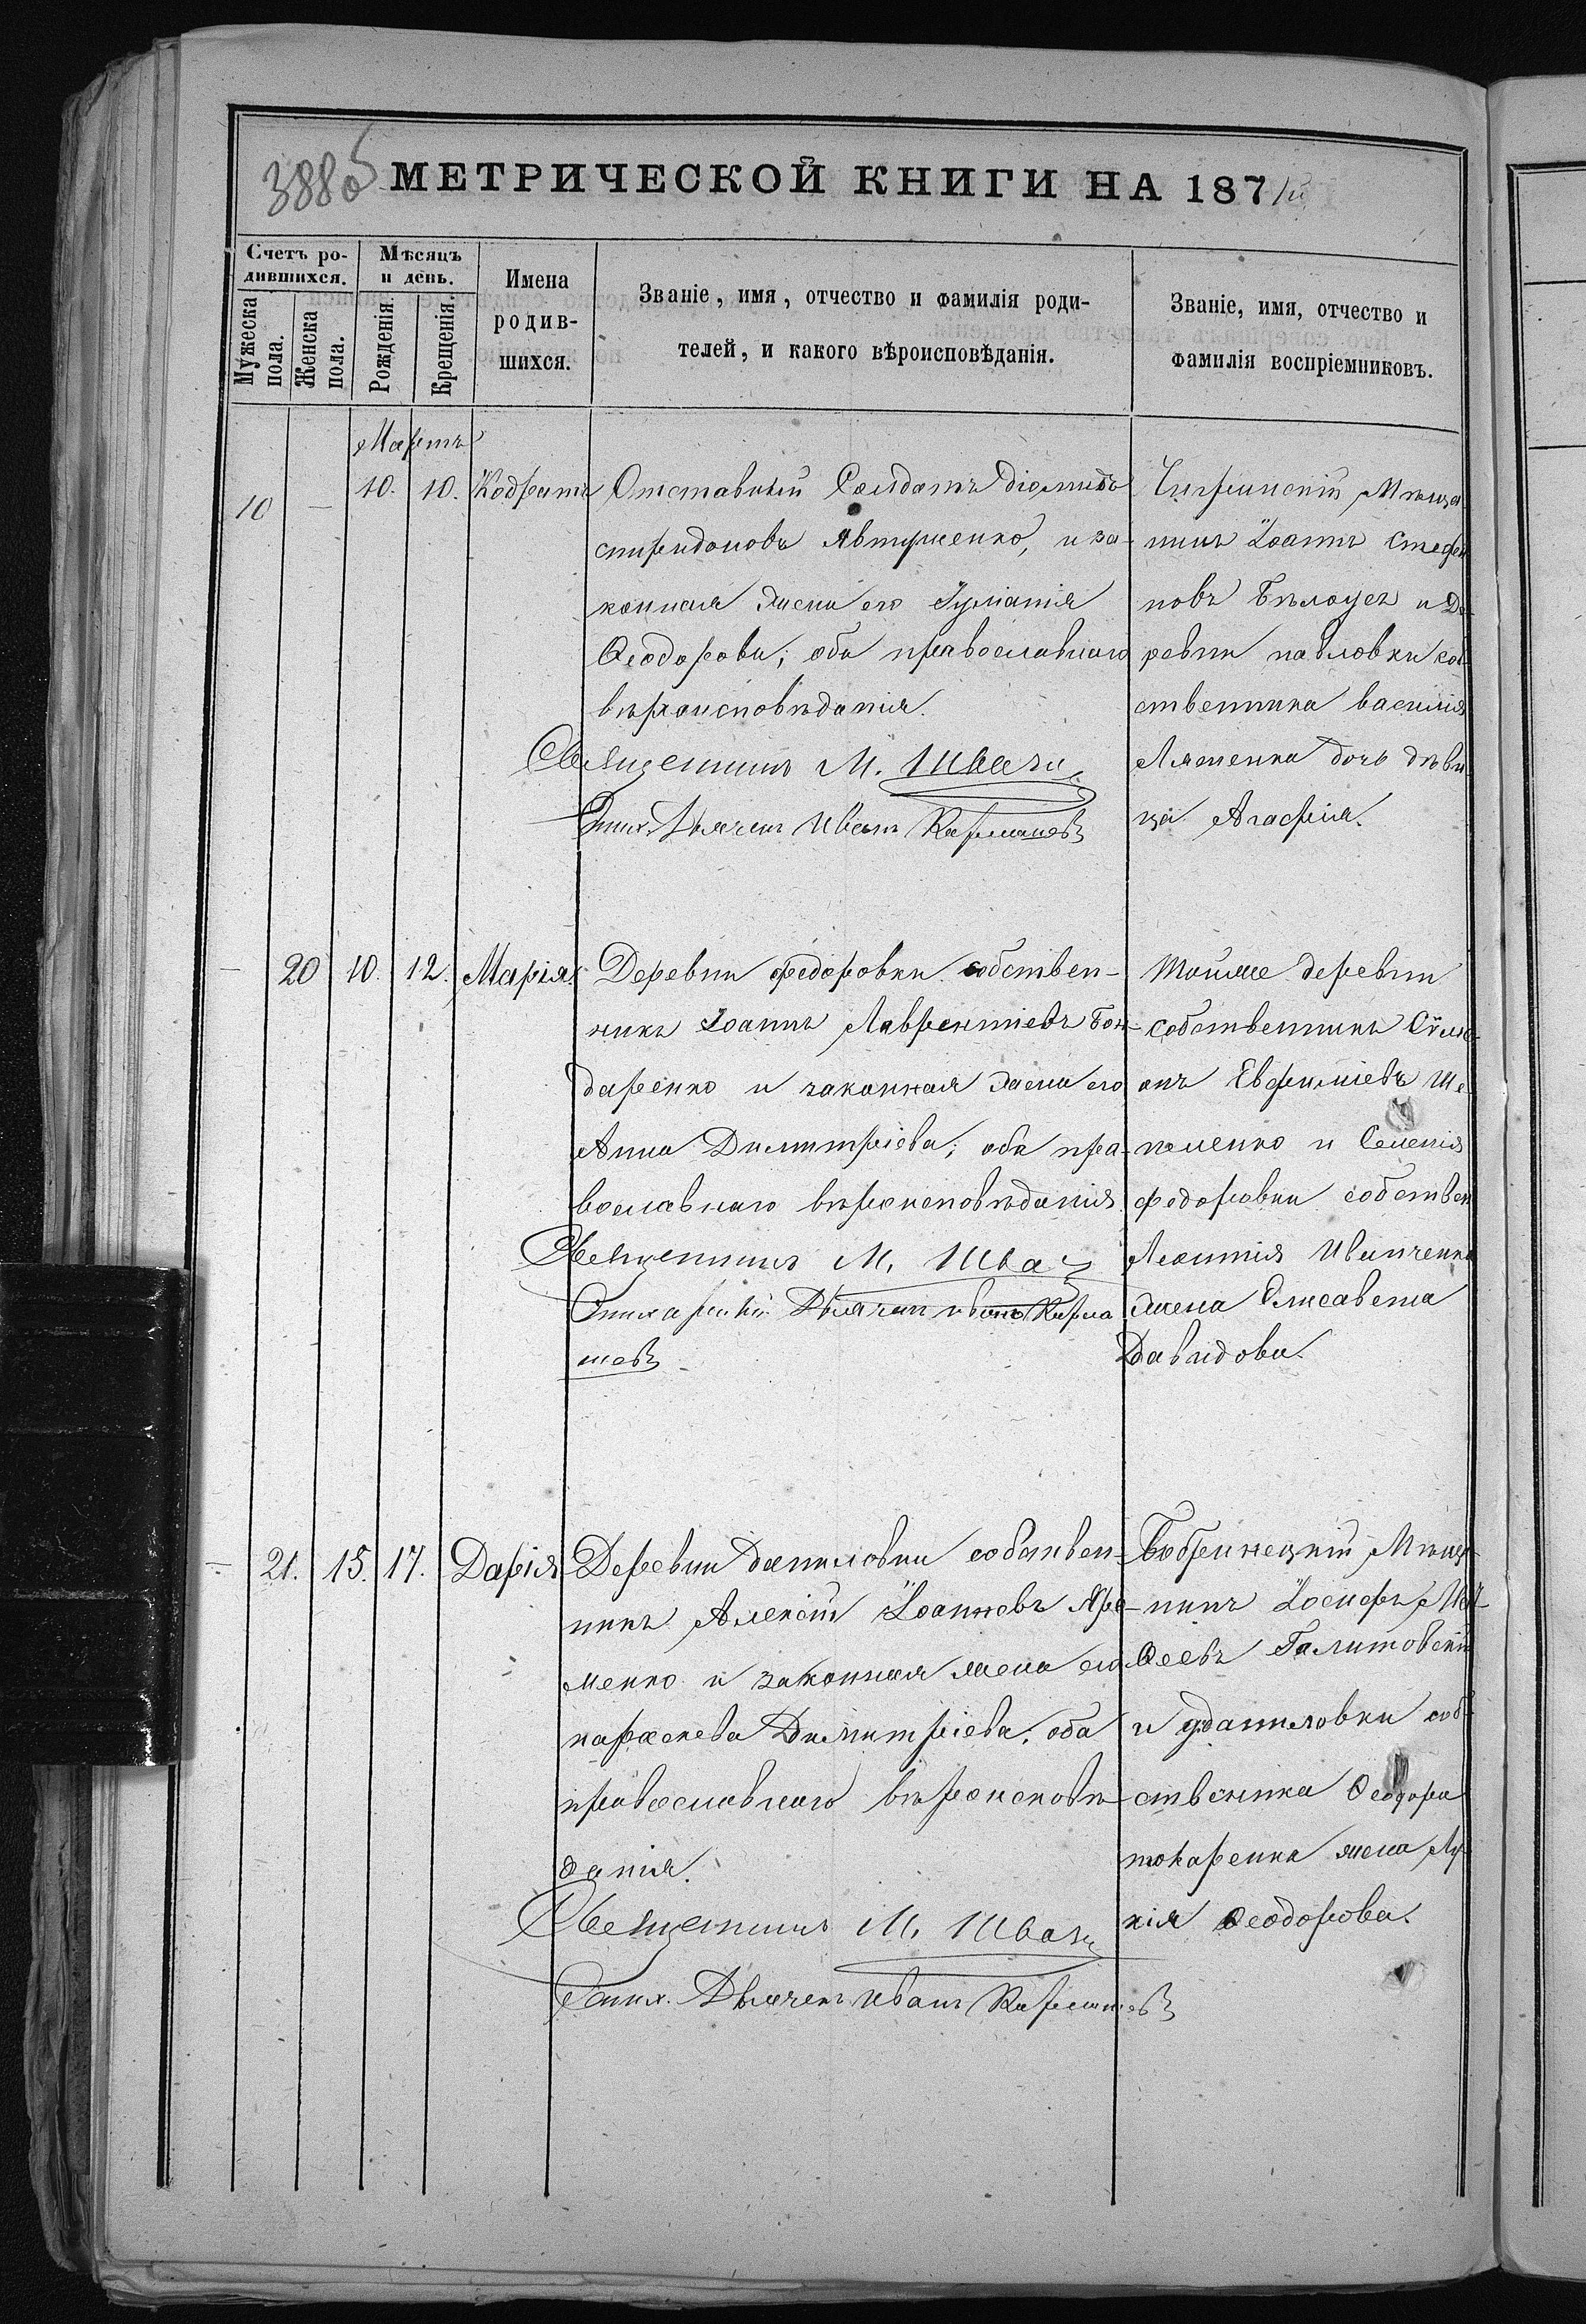 388об МЕТРИЧЕСКОЙ КНИГИ НА 187
Счетъ ро-
дившихся.
Мужеска пола.
Женска пола.
Мѣсяцъ
и день.
Рожденія.
Крещенія.
Имена
родив-
шихся.
Званіе, имя, отчество и фамилія роди-
телей, и какого вѣроисповѣданія.
Званіе, имя, отчество и
фамилія воспріемниковъ.
Мартъ
10 — 10. 10. Кодратъ
Отставный Солдатъ Діомидъ
спиридоновъ Явтушенко, и за-
конная жена его Іуліанія
Ѳеодорова; оба православнаго
вѣроисповѣданія.
Священникъ М. Швачъ
Стих. Дьячекъ Иванъ
Чигринскій Мѣща
нинъ Іоаннъ Стефа
новъ Бѣлоусъ и Де-
ревни павловки соб
ственника василія
Ляшенка дочь дѣви
ца Агафія.
— 20 10. 12. Марія.
Деревни федоровки собствен-
никъ Іоаннъ Лаврентіевъ Бон-
даренко и законная жена его
Анна Димитріева; оба пра-
вославнаго вѣроисповѣданія
Священникъ М. Швачъ
Стихарный Дьячекъ иванъ
Тойже деревни
собственникъ Сѵме-
онъ Евфиміевъ Ше
и Селенія
федоровки собствен
Леонтія Иванченка
жена Елисавета
Давидова.
— 21. 15. 17. Дарія
Деревни даниловки собствен-
никъ Алексій Іоанновъ Яре-
менко и законная жена его
параскева Димитріева; оба
православнаго вѣроисповѣ-
данія.
Священникъ М. Швачъ
Стих. Дьячекъ Иванъ
Бобринецкій Мѣща-
нинъ Іосифъ Мат-
ѳеевъ Галитовскій
и даниловки соб-
ственика Ѳеодора
токаренка жена Лу-
кія Ѳеодорова.